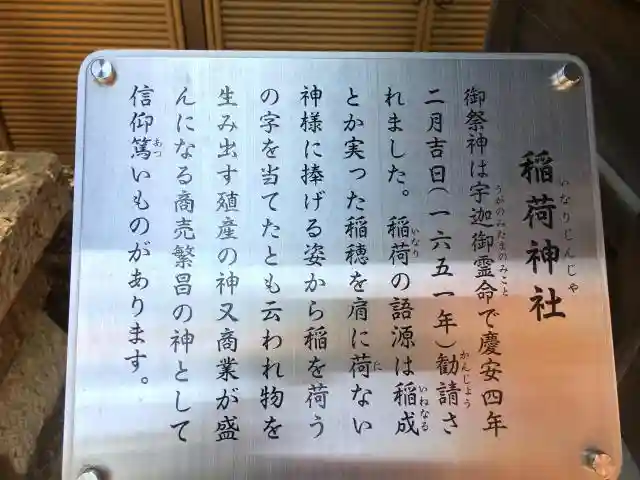 稲荷神社
いなりじんじゃ
御祭神は宇迦御霊命で慶安四年
うがのみたまのみこと
二月吉日(一六五一年)勧請さ
かんじょう
れました。稲荷の語源は稲成
いなり
いねなる
とか実った稲穂を肩に荷ない
に
神様に捧げる姿から稲を荷う
の字を当てたとも云われ物を
生み出す殖産の神又商業が盛
んになる商売繁昌の神として
信仰篤いものがあります。
あつ